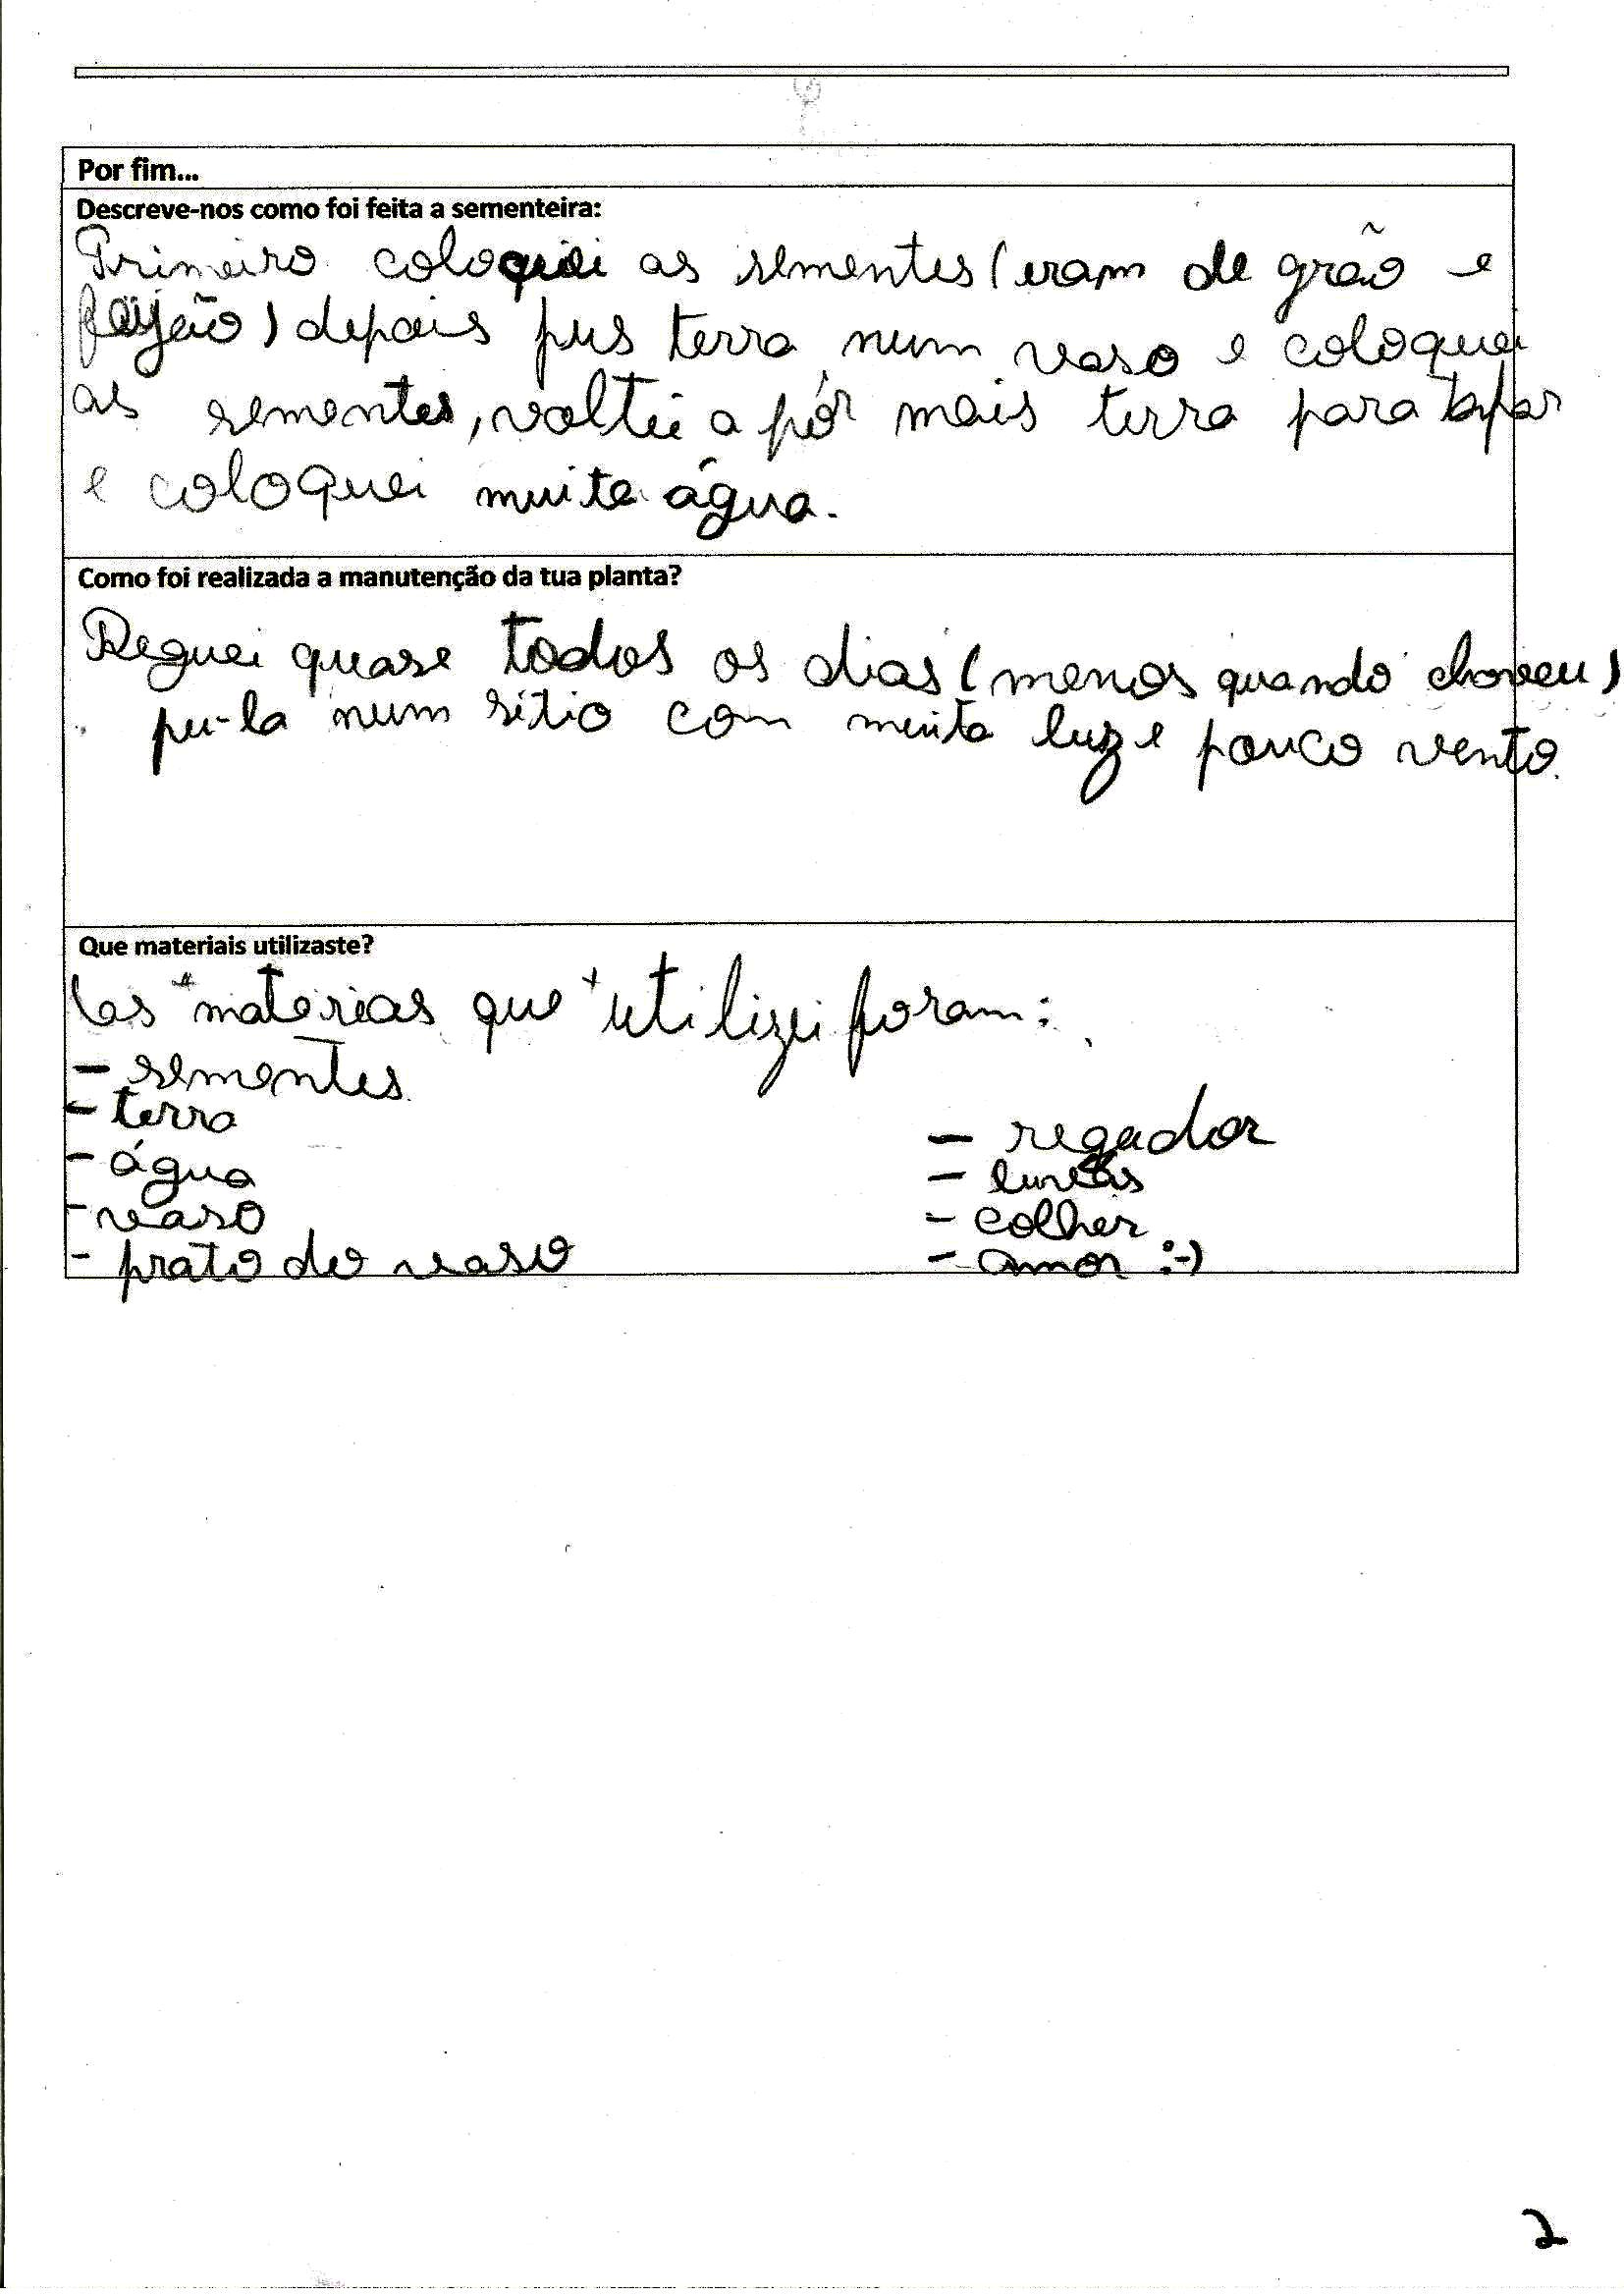 Por fim...
Descreve-nos como foi feita a sementeira:
Primeiro coloquei as sementes (eram de grão e
feijão) depois pus terra num vaso e coloquei
as sementes, voltei a pôr mais terra para tapar
e coloquei muita água.
Como foi realizada a manutenção da tua planta?
Reguei quase todos os dias (menos quando choveu)
pu-la num sítio com muita luz e pouco vento.
Que materiais utilizaste?
Os materias que utilizei foram:
- sementes
- terra
- água
- vaso
- prato do vaso
- regador
- luvas
- colher
- amor :-)
2